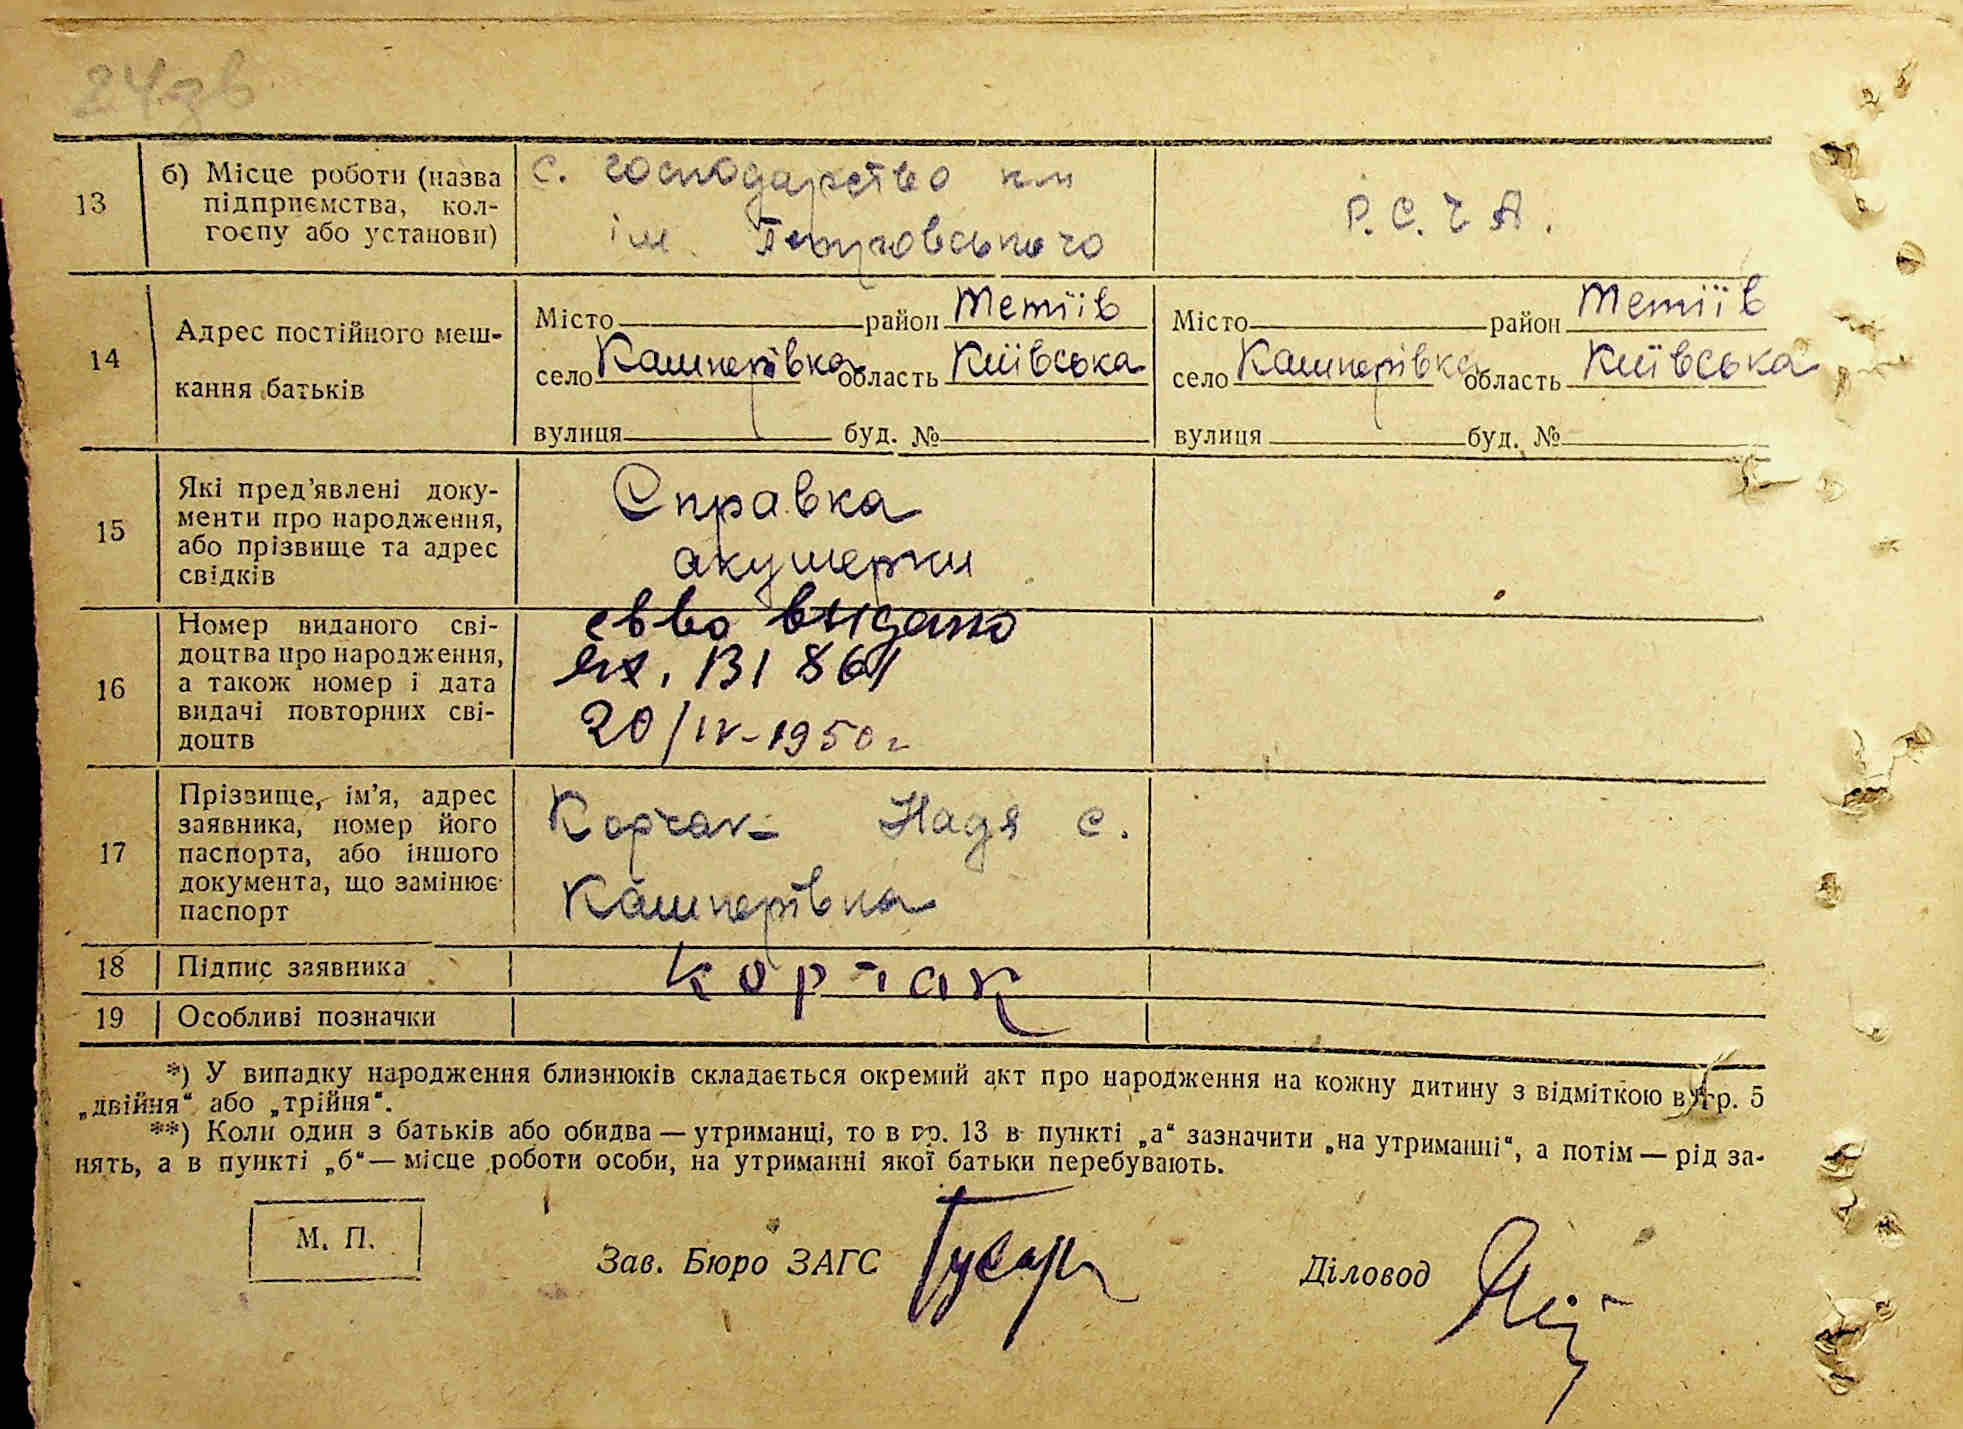 24зв
13
б) Місце роботи (назва
підприємства, кол-
госпу або установи)
с. господарство
ім.
Р.С.Ч А.
14
Адрес постійного меш-
кання батьків
Місто район Тетіїв
село Кашперівка область Київська
вулиця буд. №
Місто район Тетіїв
село Кашперівка область Київська
вулиця буд. №
15
Які пред’явлені доку-
менти про народження,
або прізвище та адрес
свідків
Справка
акушерки
16
Номер виданого сві-
доцтва про народження,
а також номер і дата
видачі повторних сві-
доцтв
св во выдано
131 861
20/IV-1950г
17
Прізвище, ім’я, адрес
заявника, номер його
паспорта, або іншого
документа, що замінює
паспорт
Корчак Надя с.
Кашперівка
18
Підпис заявника
Корчак
19
Особливі позначки
*) У випадку народження близнюків складається окремий акт про народження на кожну дитину з відміткою в гр. 5
„двійня“ або „трійня“.
**) Коли один з батьків або обидва — утриманці, то в гр. 13 в пункті „а“ зазначити „на утриманні“, а потім — рід за-
нять, а в пункті „б“ — місце роботи особи, на утриманні якої батьки перебувають.
М. П.
Зав. Бюро ЗАГС Гусар
Діловод